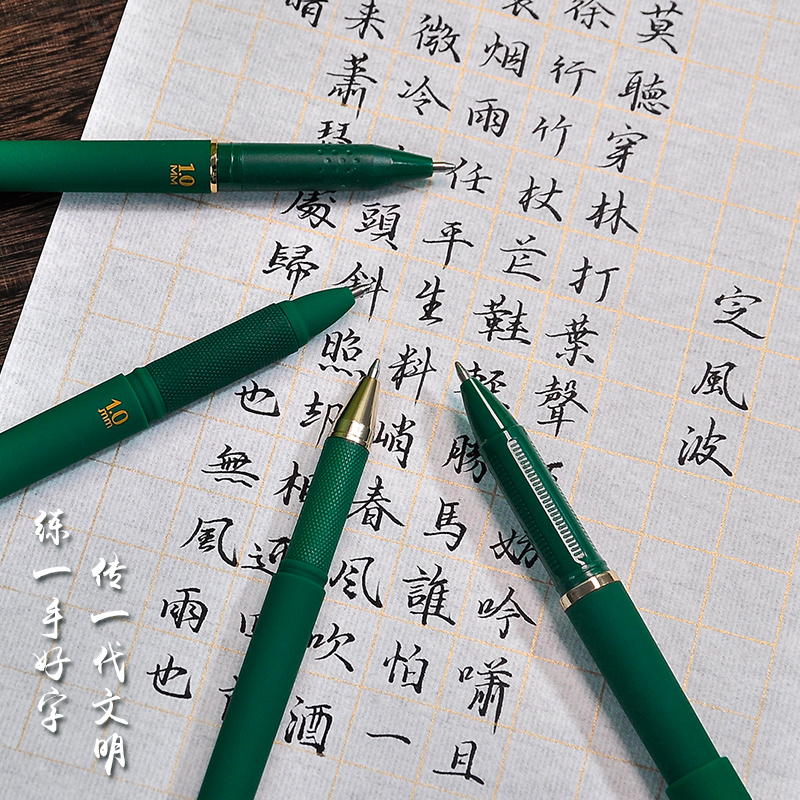 定風波
莫聽穿林打葉聲妨吟嘯且
徐行竹杖芒鞋輕勝馬誰怕一
蓑烟雨任平生料峭春風吹酒
微冷頭斜照却相迎回
來蕭瑟處歸也無風雨也
晴
1.0
MM
1.0
mm
传一代文明
练一手好字